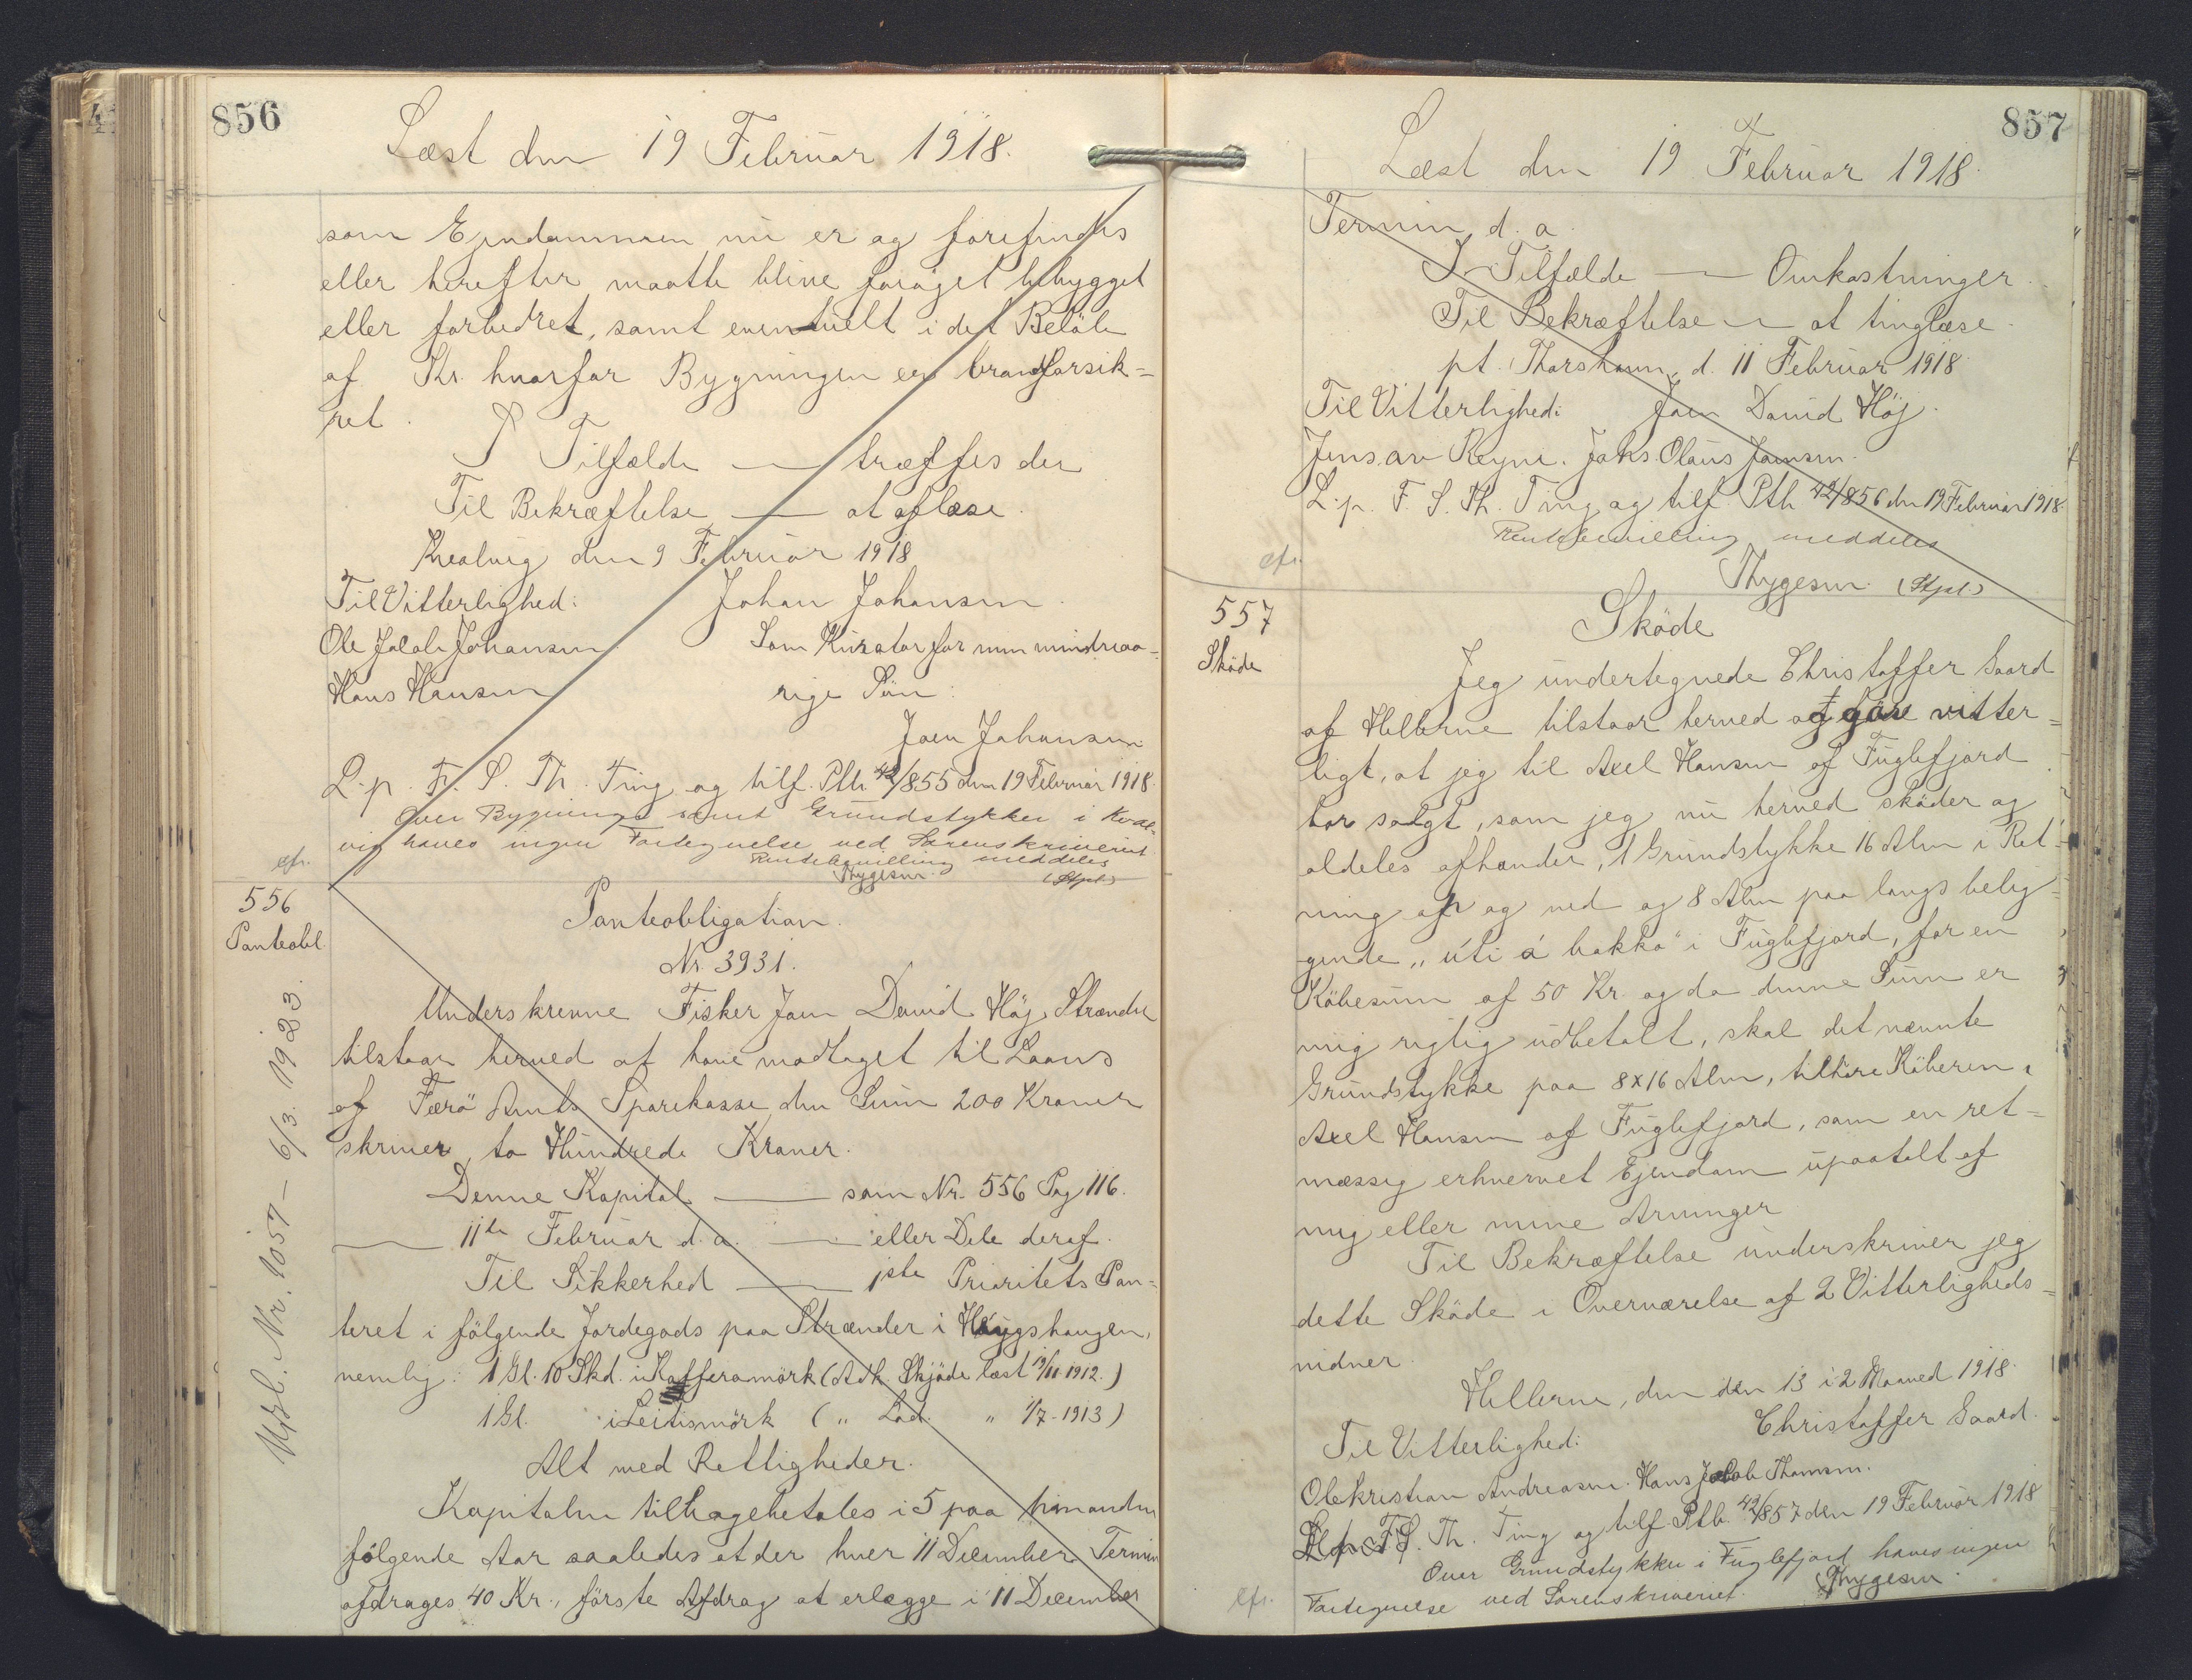 856
Læst den 19 Februar 1918.
som Ejendommen nu er og forefindes
eller herefter maatte blive forøget bebygget
eller forbedret, samt eventuelt i det Beløb
af Kr. hvorfor Bygningen er brandforsik=
ret.
I Tilfælde — træffes der
Til Bekræftelse — at aflæse.
Kvalvig den 9 Februar 1918
Til Vitterlighed: Johan Johansen.
Ole Jacob Johansen Som Kurator for min mindreaa=
Hans Hansen rige Sön:
Joen Johansen
L. p. F. S. Th. Ting og tilf. Ptb. 42/855 den 19 Februar 1918.
Over Bygning samt Grundstykker i Kval=
vig haves ingen Fortegnelse ved Sorenskriveriet
Rentebevilling meddeles
Thygesen. (Stpl)
cfr.
556
Panteobl.
Panteobligation.
Nr. 3931.
Underskrevne Fisker Joen David Höj Strænder
tilstaar herved at have modtaget til Laans
af Færö Amts Sparekasse den Sum 200 Kroner
skriver to Hundrede Kroner.
Denne Kapital — som Nr. 556 Pag 116.
— 11te Februar d. a. — eller Dele deraf.
Til Sikkerhed — 1ste Prioritets Pan=
teret i fölgende Jordegods paa Strænder i Höygshaugen,
nemlig: 1 Gl. 10 Skd. i Kafferamörk (Adk. Skjöde læst 19/11 1912.)
1 Gl. i Leitismörk ( " Lod. " 1/7-1913)
Alt med Rettigheder.
Kapitalen tilbagebetales i 5 paa hinanden
fölgende Aar saaledes at der hver 11 December Termin
afdrages 40 Kr., förste Afdrag at erlægge i 11 December
Udsl. Nr. 1057 – 6/3. 1923.
857
Læst den 19 Februar 1918.
Termin d. a.
I Tilfælde — Omkostninger.
Til Bekræftelse — at tinglæse.
pt. Thorshavn, d. 11 Februar 1918.
Til Vitterlighed: Joen David Höj.
Jens av Reyni. Jaks. Olaus Joensen.
L. p. F. S. Th. Ting og tilf. Ptb 42/856 den 19 Februar 1918.
Rentebevilling meddeles
Thygesen. (Stpl)
cfr.
557
Sköde
Sköde
Jeg undertegnede Christoffer Gaard
af Hellerne tilstaar herved og gör vitter=
ligt, at jeg til Axel Hansen af Fuglefjord
har solgt, som jeg nu herved sköder og
aldeles afhænder, 1 Grundstykke 16 Alen i Ret=
ning op og ned og 8 Alen paa langs belig=
gende „úti á bakka" i Fuglefjord, for en
Köbesum af 50 Kr. og da denne Sum er
mig rigtig udbetalt, skal det nævnte
Grundstykke paa 8x16 Alen, tilhöre Köberen,
Axel Hansen af Fuglefjord, som en ret=
mæssig erhvervet Ejendom upaatalt af
mig eller mine Arvinger
Til Bekræftelse underskriver jeg
dette Sköde i Overværelse af 2 Vitterligheds=
vidner.
Hellerne, den den 13 i 2 Maaned 1918.
Til Vitterlighed: Christoffer Gaard.
Olekristian Andreasen. Hans Jacob Thomsen.
L. p. F. S. Th. Ting og tilf. Ptb. 42/857 den 19 Februar 1918
Over Grundstykker i Fuglefjord haves ingen
Fortegnelse ved Sorenskriveriet. Thygesen.
cfr.